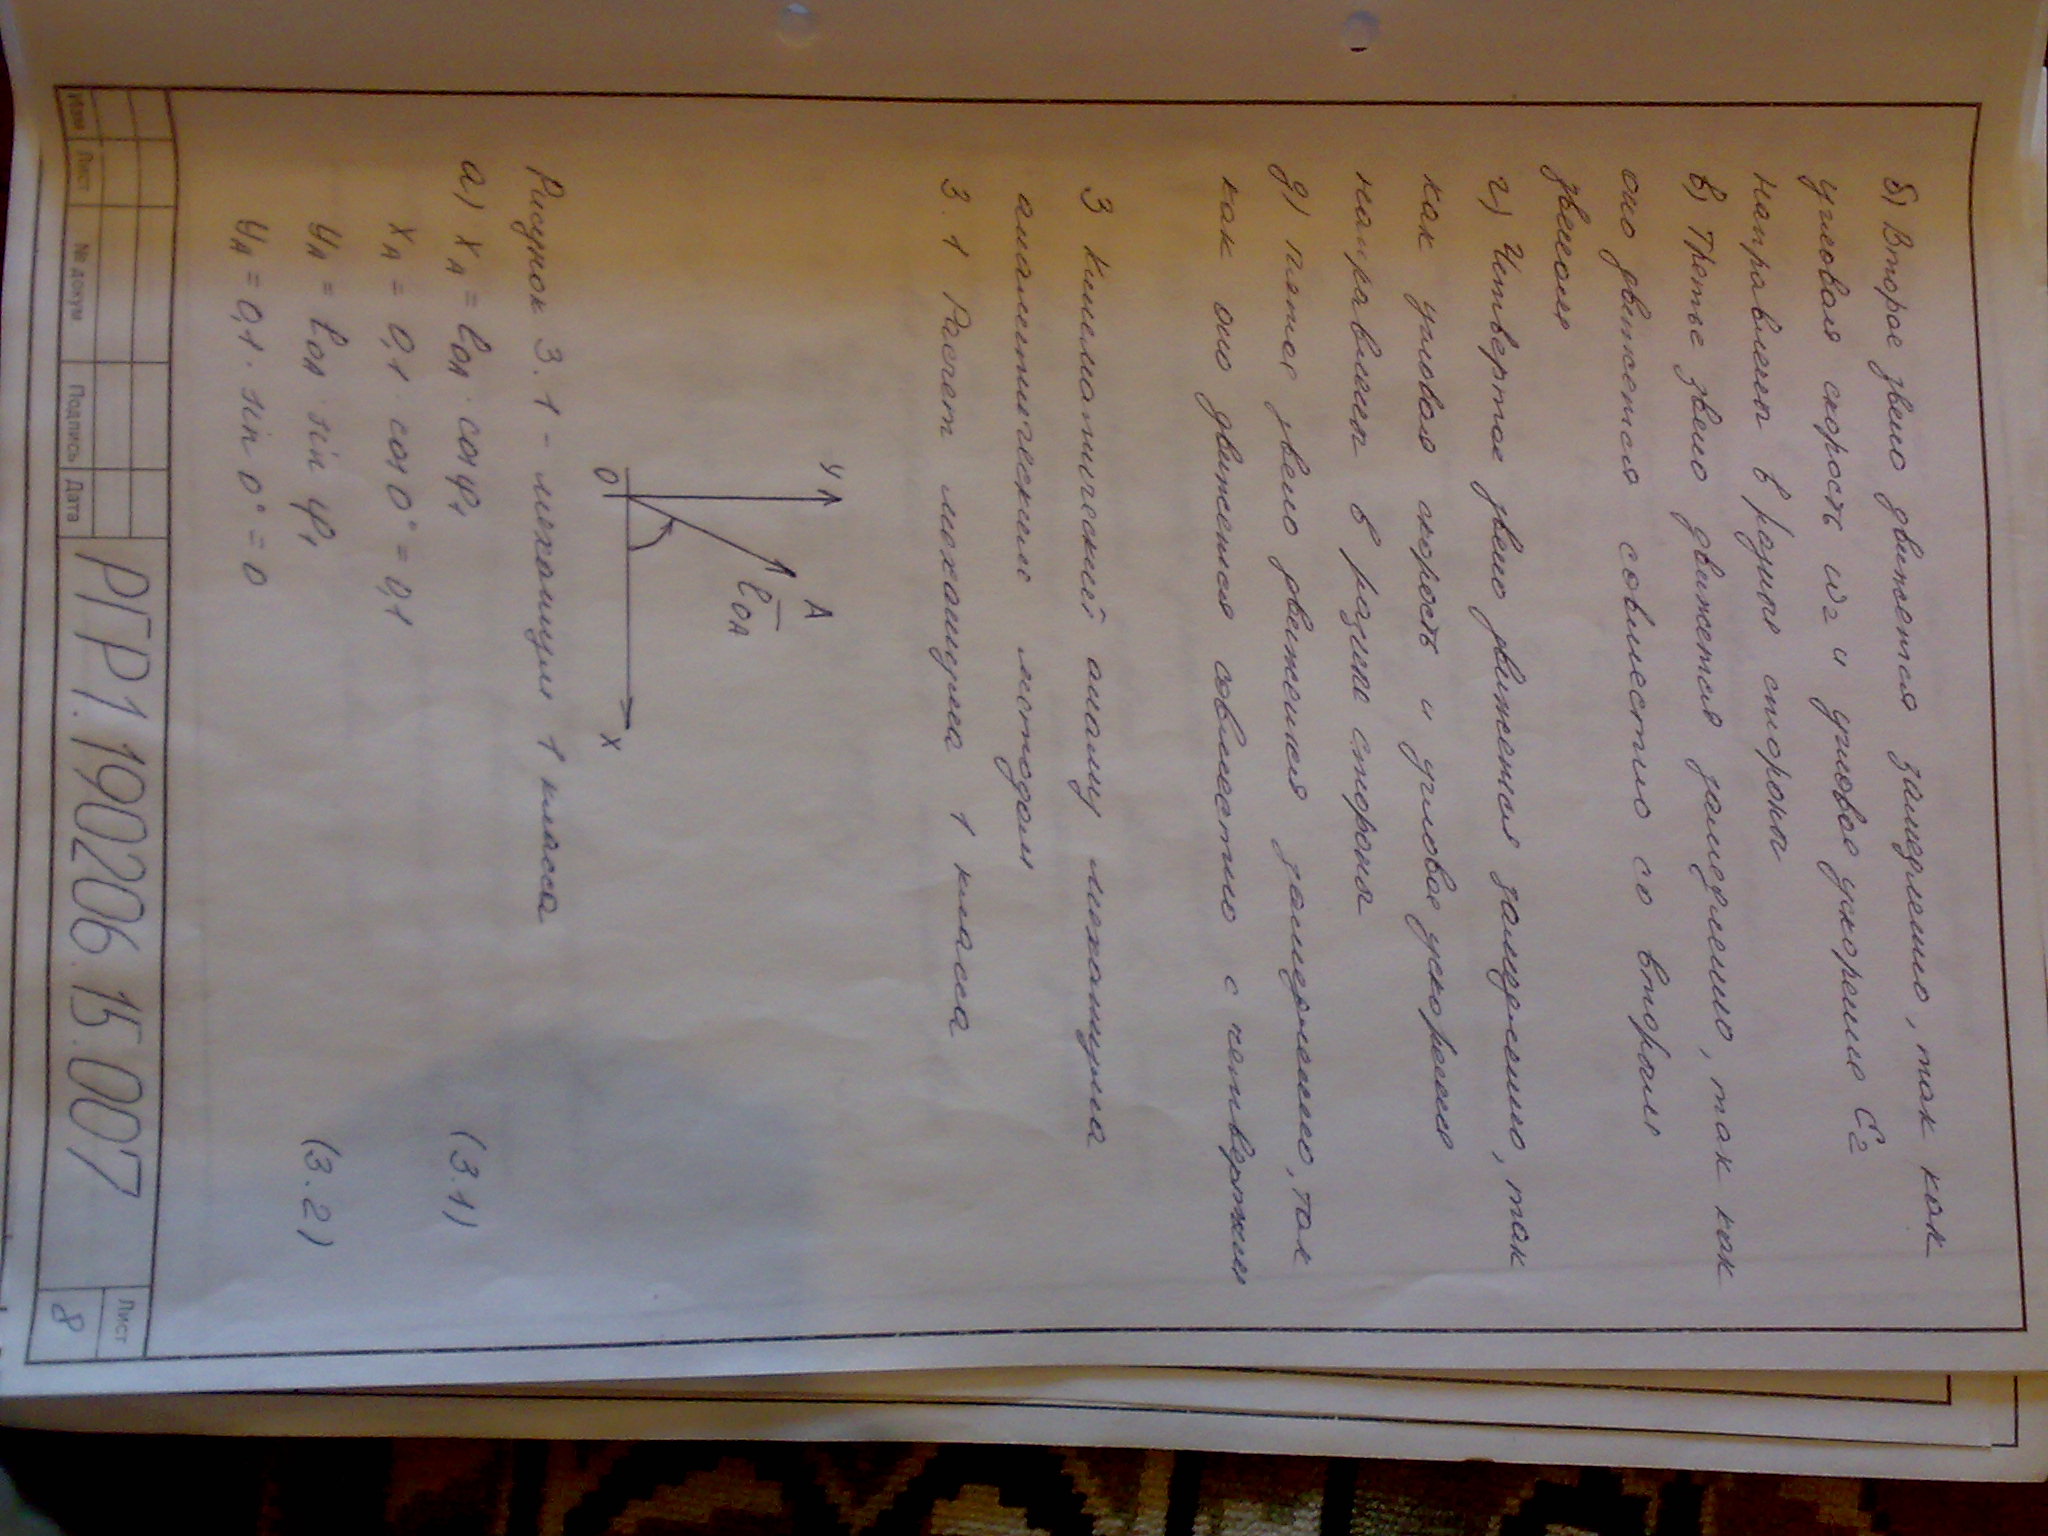 б) Второе звено движется замедленно, так как
угловая скорость ω2 и угловое ускорение ε2
направлены в разные стороны
в) Третье звено движется замедленно, так как
оно движется совместно со вторым
звеном
г) Четвертое звено движется замедленно, так
как угловая скорость и угловое ускорение
направлены в разные стороны
д) пятое звено движется замедленно, так
как оно движется совместно с четвертым
3 Кинематический анализ механизма
аналитическим методом
3.1 Расчет механизма 1 класса
y
A
l̅OA
O
x
Рисунок 3.1 - механизм 1 класса
а) xA = lOA · cos φ1 (3.1)
xA = 0,1 · cos 0° = 0,1
yA = lOA · sin φ1 (3.2)
yA = 0,1 · sin 0° = 0
РГР1.190206.15.007
Лист
8
Изм Лист № докум Подпись Дата